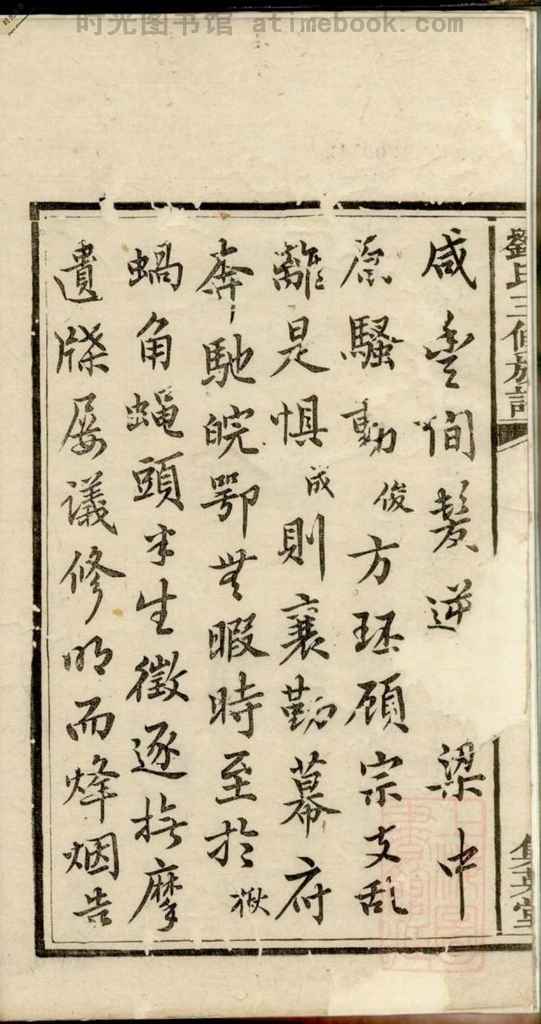 时光图书馆 atimebook.com
劉氏三修族譜
咸豐間髮逆 梁中
原騷動俊方珏顾宗支乱
離是惧成則襄勷幕府
奔馳皖鄂無暇時至於嶽
蝸角蝇頭半生徵逐撫摩
遺牒屡議修明而烽烟告
集英堂